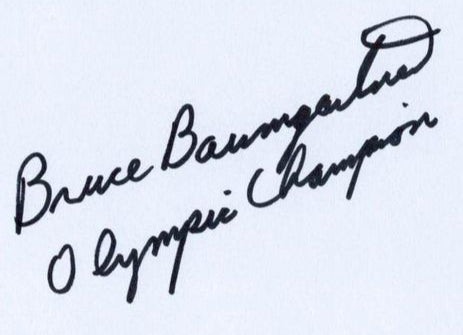 Bruce Baumgartner
Olympic Champion